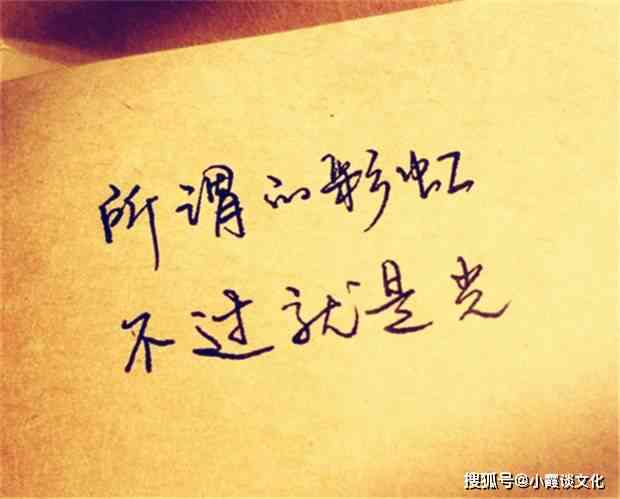 所谓的彩虹
不过就是光
搜狐号@小霞谈文化